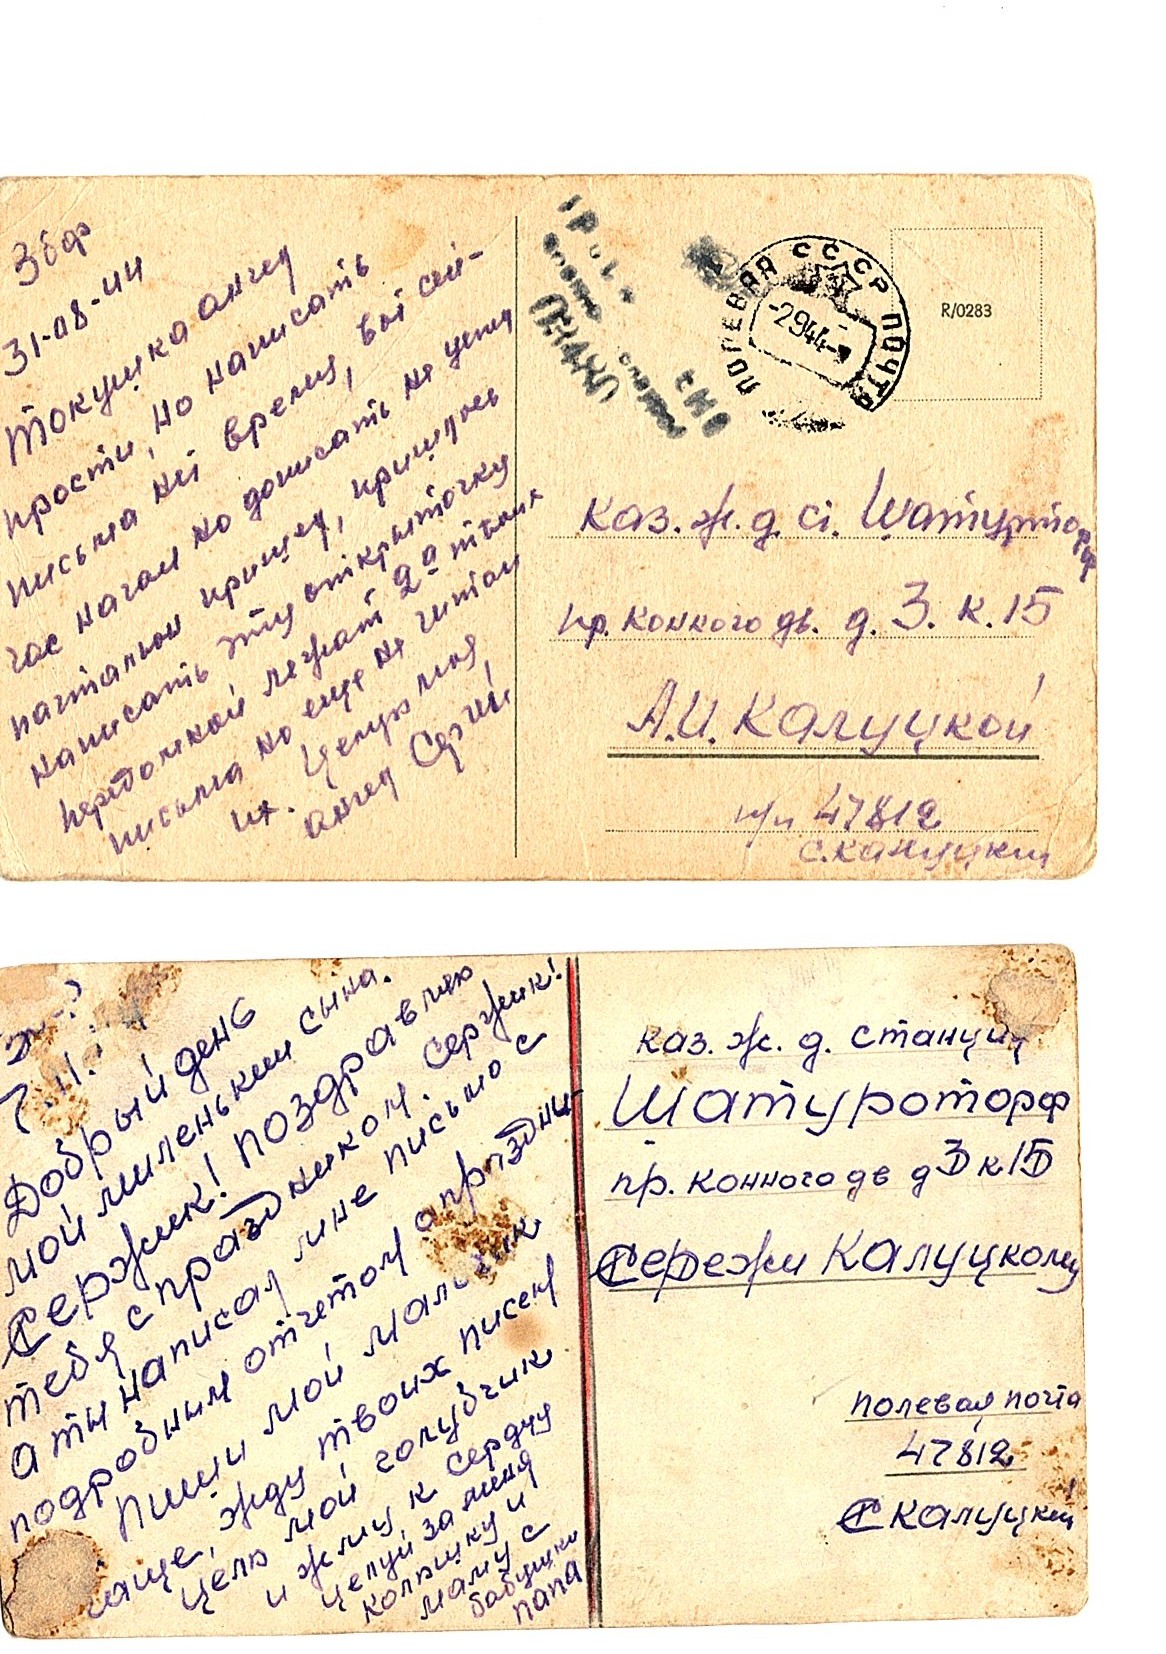 36 ф
31-08-44
Токушка ангел
прости, но написать
письма нет время, вот сей-
час начал но дописать не успел
патальон пришел, пришлось
написать эту открыточку
передомной лежат 2а твоих
письма но еще не читал
их. Целую моя,
ангел Сергий
ПОЛЕВАЯ ПОЧТА СССР
-2944-
R/0283
каз. ж. д. ст. Шатурторф
пр. конного дв. д. 3. к. 15
А.И. Калуцкой
п/п 47812
С. Калуцкий
7.11.
Добрый день
мой миленький сына.
Сержик! поздравляю
тебя с праздником. Сержик!
а ты написал мне письмо с
подробным отчетом о праздни
Пиши мой мальчик
чаще, жду твоих писем
Целю мой голубчик
и жму к сердцу
целуй за меня
Колюшку и
маму с
бабушки
папа
каз. ж. д. станция
Шатуроторф
пр. конного дв д 3 к 15
Сережи Калуцкому
полевая почта
47812
С Калуцкий